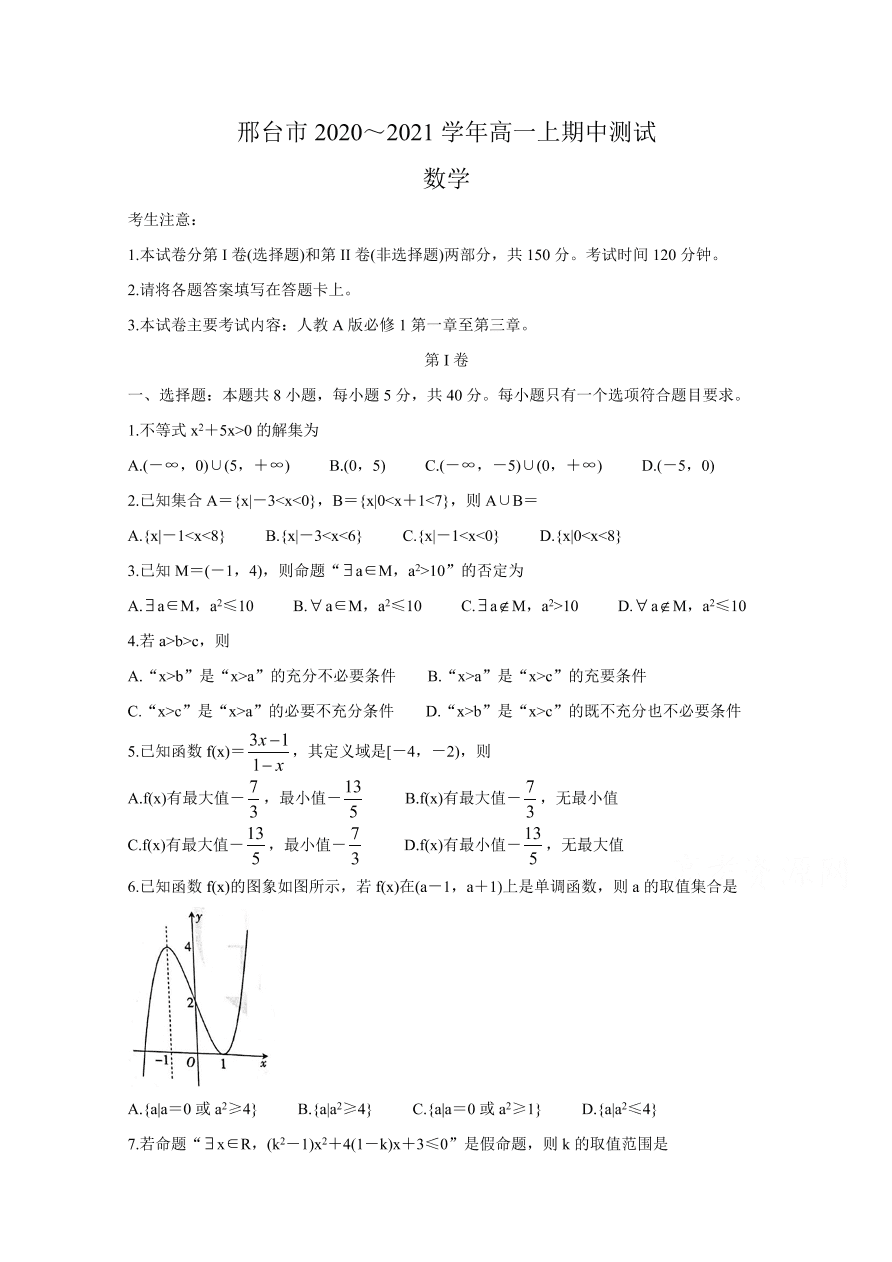 邢台市 2020～2021 学年高一上期中测试
数学
考生注意：
1.本试卷分第 I 卷(选择题)和第 II 卷(非选择题)两部分，共 150 分。考试时间 120 分钟。
2.请将各题答案填写在答题卡上。
3.本试卷主要考试内容：人教 A 版必修 1 第一章至第三章。
第 I 卷
一、选择题：本题共 8 小题，每小题 5 分，共 40 分。每小题只有一个选项符合题目要求。
1.不等式 x²＋5x>0 的解集为
A.(－∞，0)∪(5，＋∞) B.(0，5) C.(－∞，－5)∪(0，＋∞) D.(－5，0)
2.已知集合 A＝{x|－3<x<0}，B＝{x|0<x＋1<7}，则 A∪B＝
A.{x|－1<x<8} B.{x|－3<x<6} C.{x|－1<x<0} D.{x|0<x<8}
3.已知 M＝(－1，4)，则命题“∃a∈M，a²>10”的否定为
A.∃a∈M，a²≤10 B.∀a∈M，a²≤10 C.∃a∉M，a²>10 D.∀a∉M，a²≤10
4.若 a>b>c，则
A.“x>b”是“x>a”的充分不必要条件 B.“x>a”是“x>c”的充要条件
C.“x>c”是“x>a”的必要不充分条件 D.“x>b”是“x>c”的既不充分也不必要条件
5.已知函数 f(x)＝(3x－1)/(1－x)，其定义域是[－4，－2)，则
A.f(x)有最大值－7/3，最小值－13/5 B.f(x)有最大值－7/3，无最小值
C.f(x)有最大值－13/5，最小值－7/3 D.f(x)有最小值－13/5，无最大值
6.已知函数 f(x)的图象如图所示，若 f(x)在(a－1，a＋1)上是单调函数，则 a 的取值集合是
y
4
2
－1 O 1 x
A.{a|a＝0 或 a²≥4} B.{a|a²≥4} C.{a|a＝0 或 a²≥1} D.{a|a²≤4}
7.若命题“∃x∈R，(k²－1)x²＋4(1－k)x＋3≤0”是假命题，则 k 的取值范围是